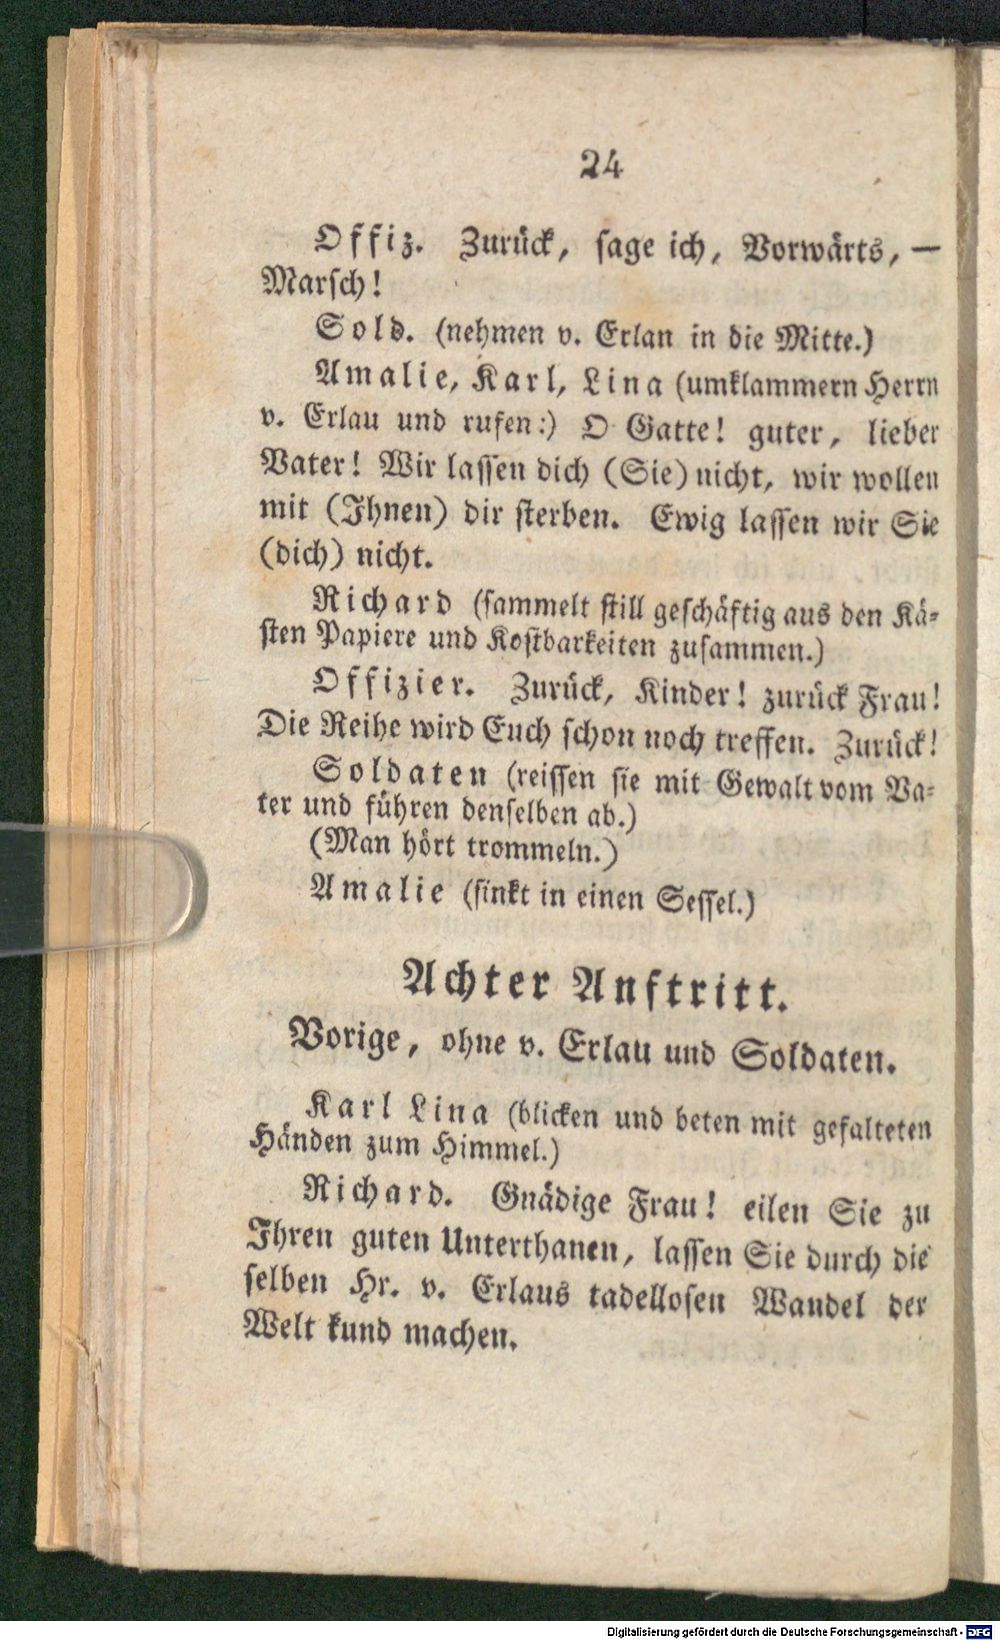 24
Offiz. Zurück, sage ich, Vorwärts, —
Marsch!
Sold. (nehmen v. Erlan in die Mitte.)
Amalie, Karl, Lina (umklammern Herrn
v. Erlau und rufen:) O Gatte! guter, lieber
Vater! Wir lassen dich (Sie) nicht, wir wollen
mit (Ihnen) dir sterben. Ewig lassen wir Sie
(dich) nicht.
Richard (sammelt still geschäftig aus den Kä-
sten Papiere und Kostbarkeiten zusammen.)
Offizier. Zurück, Kinder! zurück Frau!
Die Reihe wird Euch schon noch treffen. Zurück!
Soldaten (reissen sie mit Gewalt vom Va-
ter und führen denselben ab.)
(Man hört trommeln.)
Amalie (sinkt in einen Sessel.)
Achter Anftritt.
Vorige, ohne v. Erlau und Soldaten.
Karl Lina (blicken und beten mit gefalteten
Händen zum Himmel.)
Richard. Gnädige Frau! eilen Sie zu
Ihren guten Unterthanen, lassen Sie durch die
selben Hr. v. Erlaus tadellosen Wandel der
Welt kund machen.
Digitalisierung gefördert durch die Deutsche Forschungsgemeinschaft - DFG